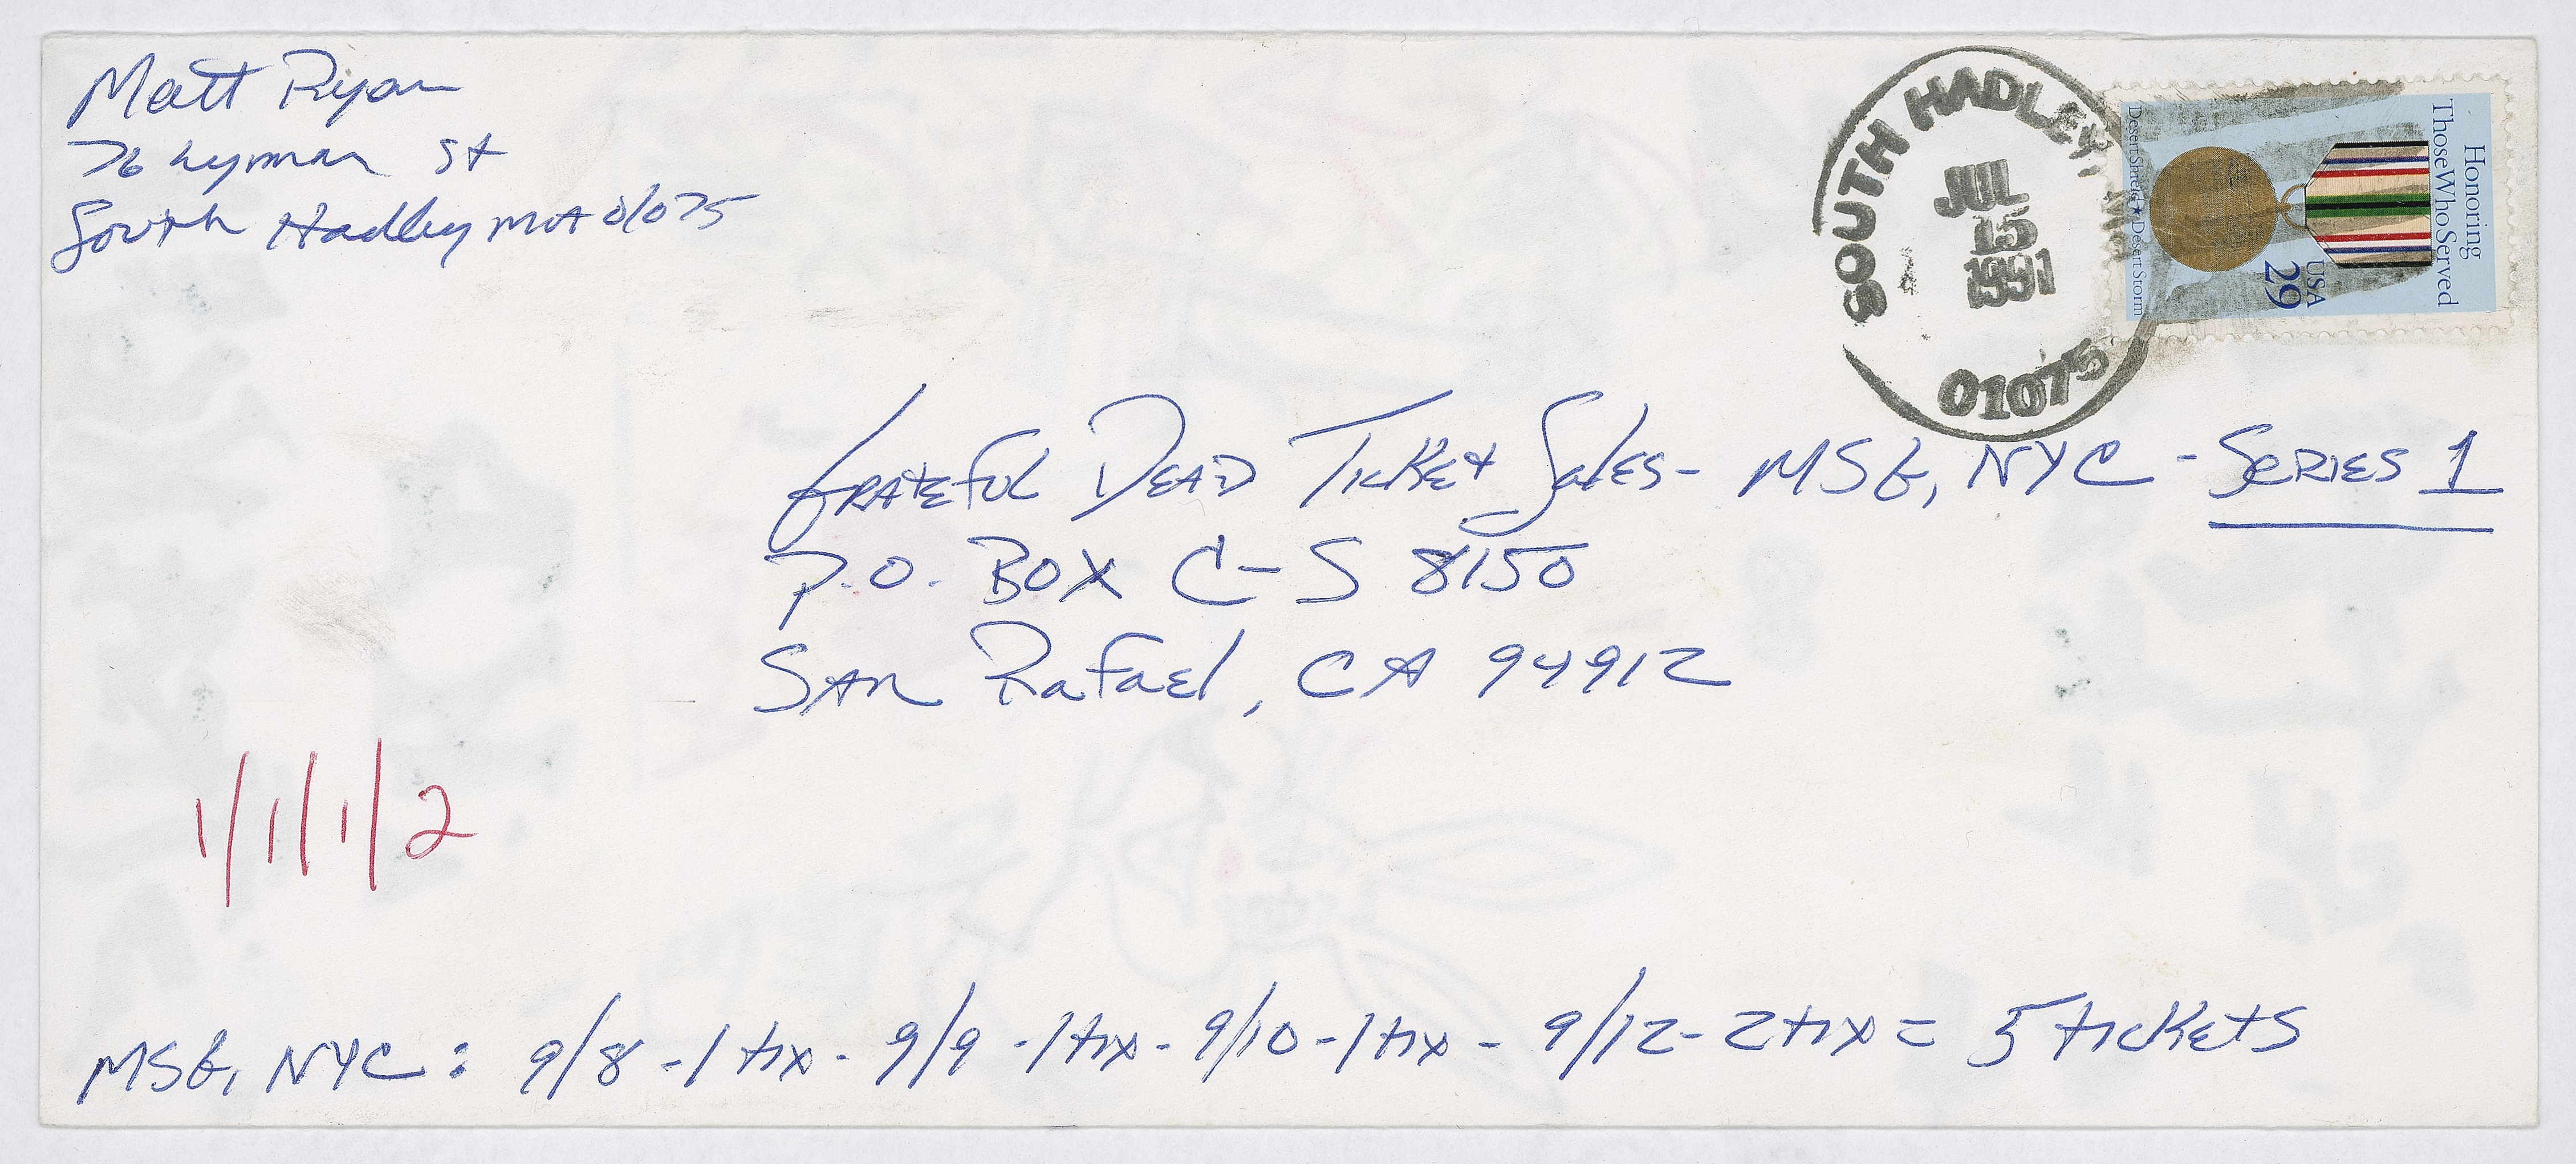 Matt Ryan
76 Lyman St
South Hadley MA 01075
SOUTH HADLEY MA
JUL
15
1991
01075
Honoring
Those Who Served
USA
29
Desert Shield ★ Desert Storm
Grateful Dead Ticket Sales - MSG, NYC - Series 1
P.O. Box C-S 8150
San Rafael, CA 94912
1/1/1/2
MSG, NYC: 9/8 - 1 tix - 9/9 - 1 tix - 9/10 - 1 tix - 9/12 - 2 tix = 5 tickets